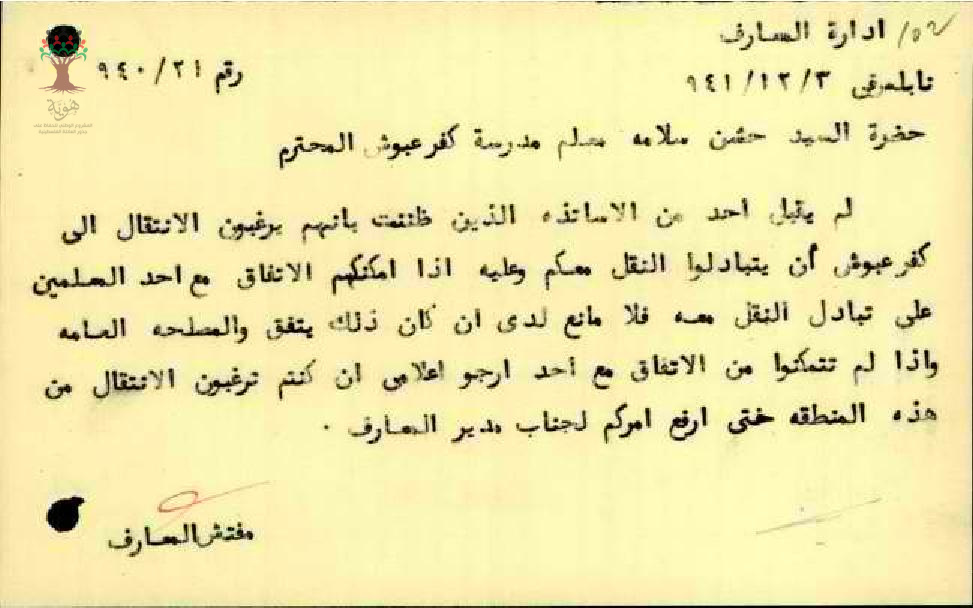 ادارة المعارف
نابلس في ٩٤١/١٢/٣
رقم ٩٤٠/٢١
هوية
حضرة السيد حسن سلامه معلم مدرسة كفر عبوش المحترم
لم يقبل احد من الاساتذه الذين ظننت بانهم يرغبون الانتقال الى
كفر عبوش أن يتبادلوا النقل معكم وعليه اذا امكنكم الاتفاق مع احد المعلمين
على تبادل النقل معه فلا مانع لدى ان كان ذلك يتفق والمصلحه العامه
واذا لم تتمكنوا من الاتفاق مع أحد ارجو اعلامى ان كنتم ترغبون الانتقال من
هذه المنطقه حتى ارفع امركم لجناب مدير المعارف .
مفتش المعارف